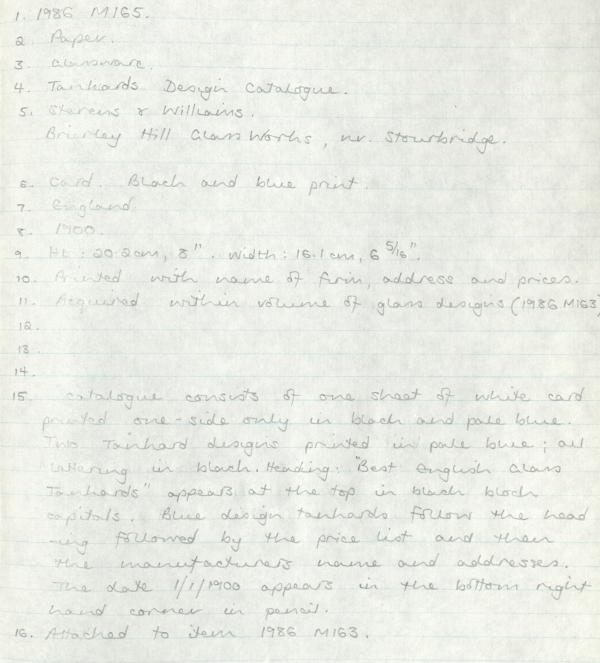 1. 1986 M165.
2. Paper.
3. Glassware.
4. Tankards Design Catalogue.
5. Stevens & Williams.
Brierley Hill Glass Works, nr. Stourbridge.
6. Card. Black and blue print.
7. England.
8. 1900.
9. Ht: 20.2cm, 8". Width: 16.1cm, 6 5/16".
10. Printed with name of firm, address and prices.
11. Acquired within volume of glass designs (1986 M163)
12.
13.
14.
15. Catalogue consists of one sheet of white card
printed one-side only in black and pale blue.
Two Tankard designs printed in pale blue; all
lettering in black. Heading: "Best English Glass
Tankards" appears at the top in black block
capitals. Blue design tankards follow the head
-ing followed by the price list and then
the manufacturers name and addresses.
The date 1/1/1900 appears in the bottom right
hand corner in pencil.
16. Attached to item 1986 M163.